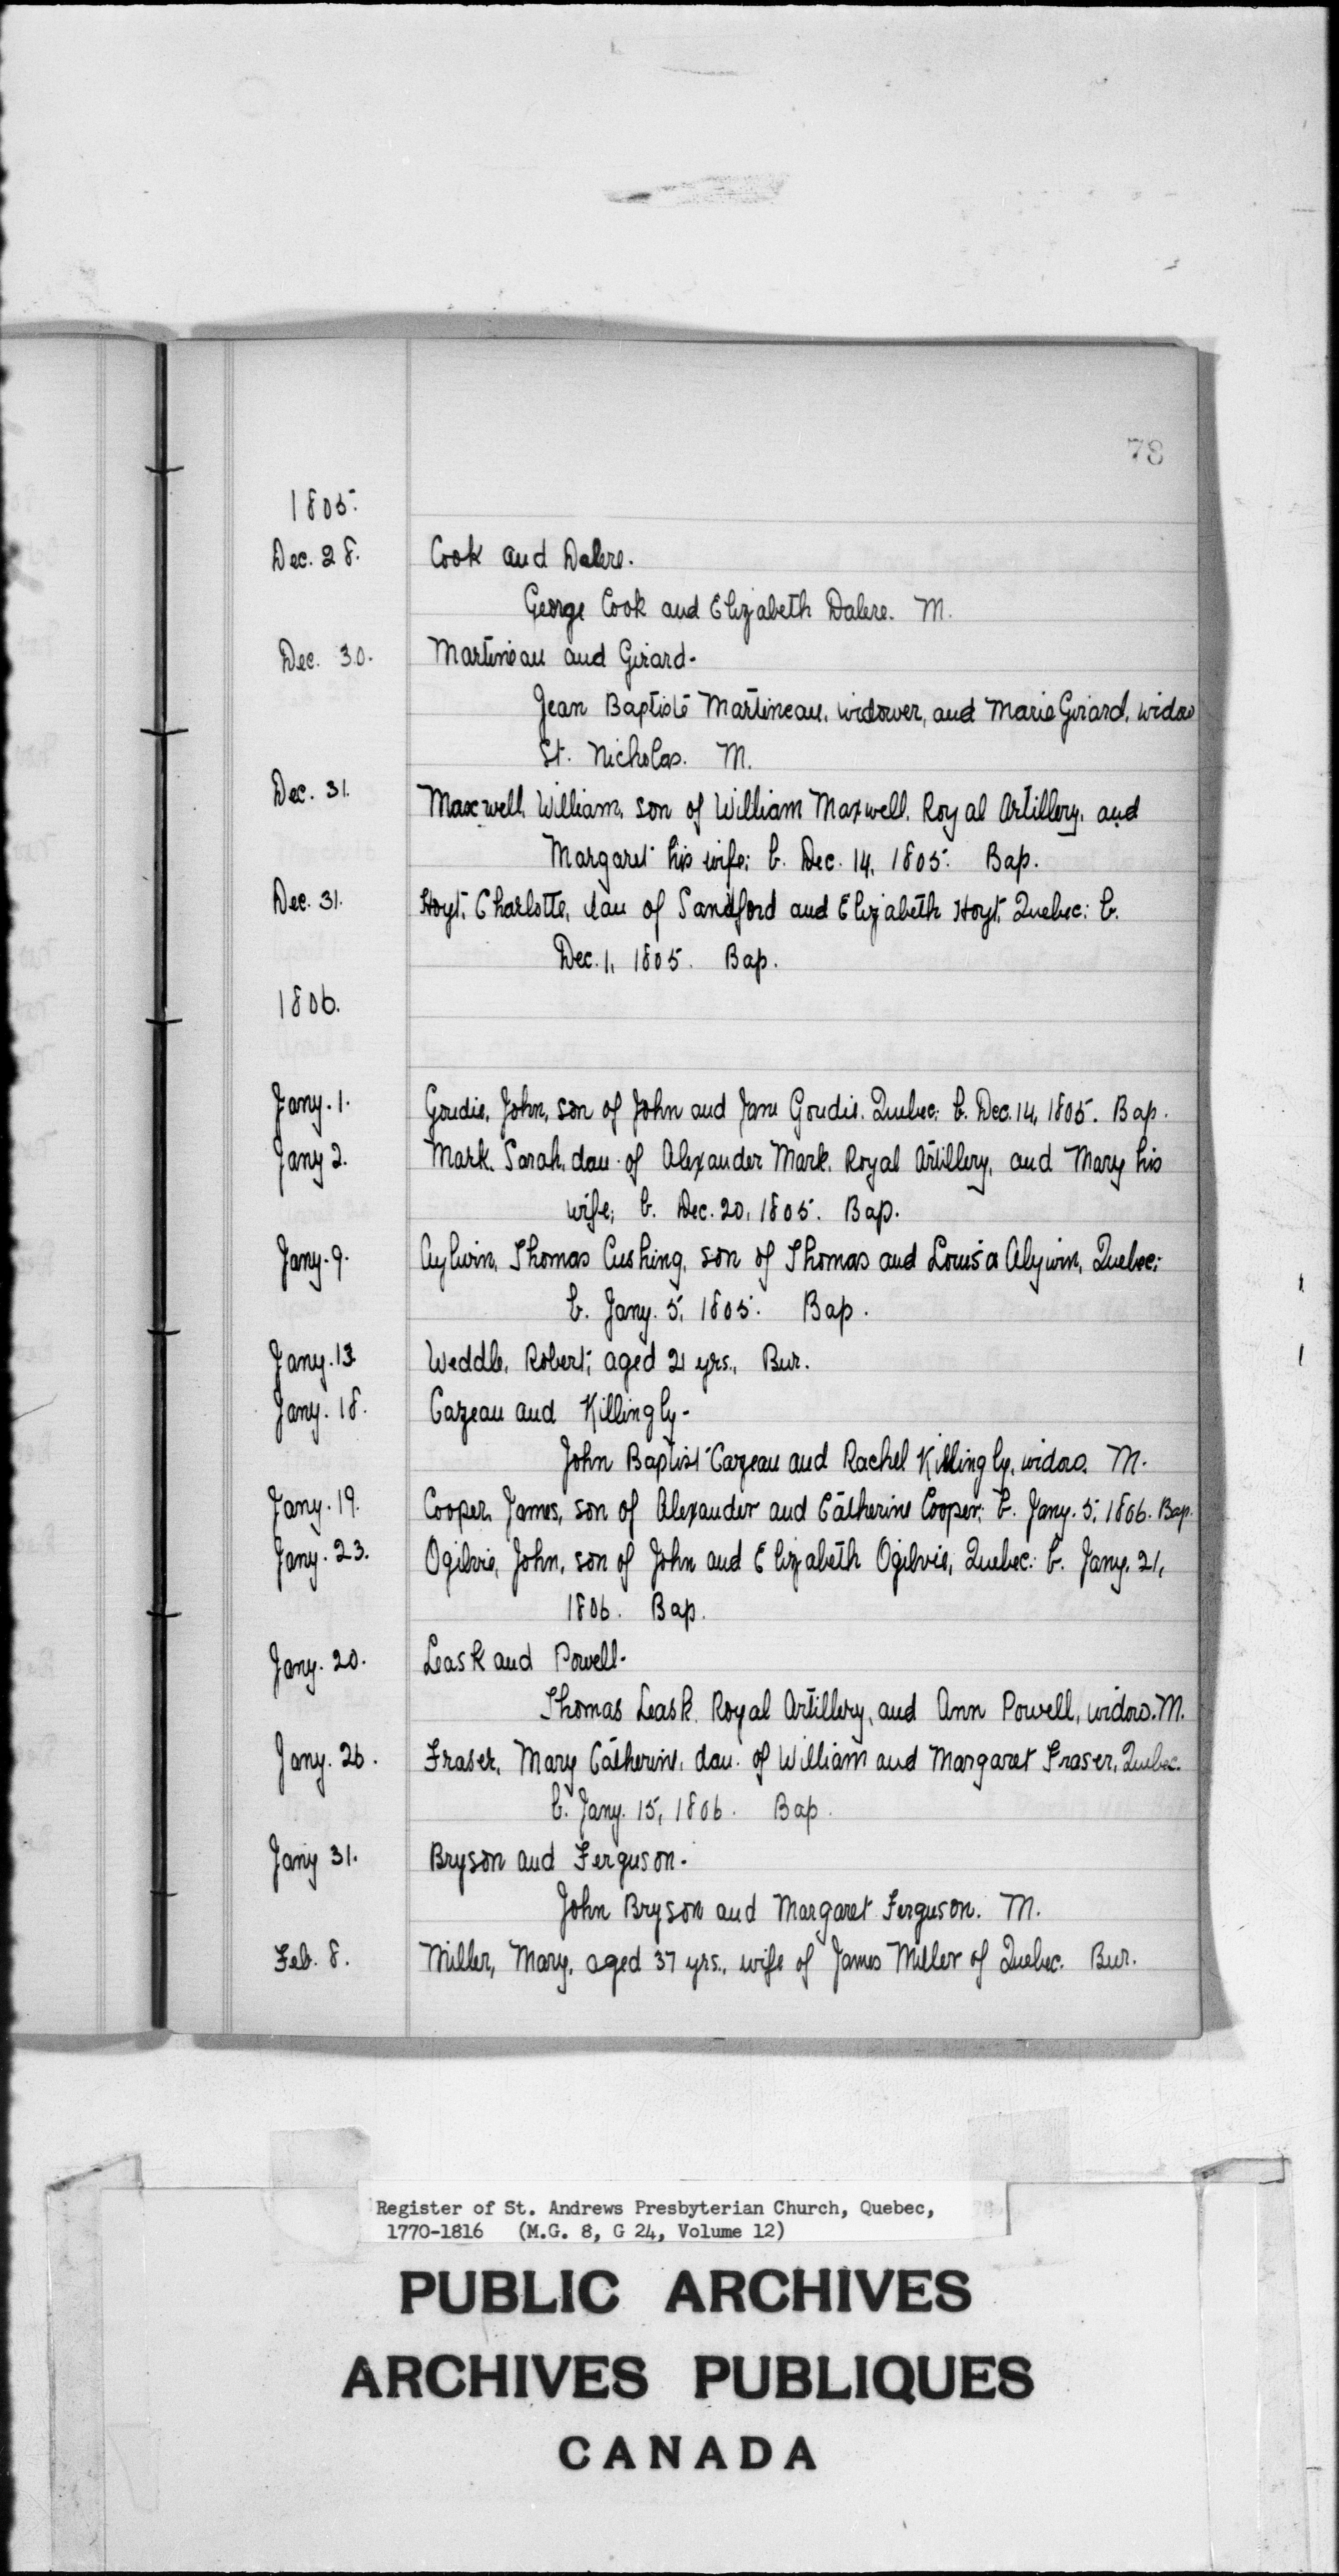 78
1805.
Dec. 28. Cook and Dalere.
George Cook and Elizabeth Dalere. M.
Dec. 30. Martineau and Girard.
Jean Baptiste Martineau, widower, and Marie Girard, widow
St. Nicholas. M.
Dec. 31. Maxwell, William, son of William Maxwell, Royal Artillery, and
Margaret his wife; b. Dec. 14, 1805. Bap.
Dec. 31. Hoyt, Charlotte, dau of Sandford and Elizabeth Hoyt, Quebec; b.
Dec. 1, 1805. Bap.
1806.
Jany. 1. Goudie, John, son of John and Jane Goudie, Quebec; b. Dec. 14, 1805. Bap.
Jany 2. Mark, Sarah, dau. of Alexander Mark, Royal Artillery, and Mary his
wife; b. Dec. 20, 1805. Bap.
Jany. 9. Aylwin, Thomas Cushing, son of Thomas and Louisa Alywin, Quebec;
b. Jany. 5, 1805. Bap.
Jany. 13. Weddle, Robert; aged 21 yrs., Bur.
Jany. 18. Cazeau and Killingly.
John Baptist Cazeau and Rachel Killingly, widow. M.
Jany. 19. Cooper, James, son of Alexander and Catherine Cooper; b. Jany. 5, 1806. Bap.
Jany. 23. Ogilvie, John, son of John and Elizabeth Ogilvie, Quebec: b. Jany. 21,
1806. Bap.
Jany. 20. Leask and Powell.
Thomas Leask, Royal Artillery, and Ann Powell, widow. M.
Jany. 26. Fraser, Mary Catherine, dau. of William and Margaret Fraser, Quebec.
b. Jany. 15, 1806. Bap.
Jany 31. Bryson and Ferguson.
John Bryson and Margaret Ferguson. M.
Feb. 8. Miller, Mary, aged 37 yrs., wife of James Miller of Quebec. Bur.
Register of St. Andrews Presbyterian Church, Quebec,
1770-1816 (M.G. 8, G 24, Volume 12)
PUBLIC ARCHIVES
ARCHIVES PUBLIQUES
CANADA